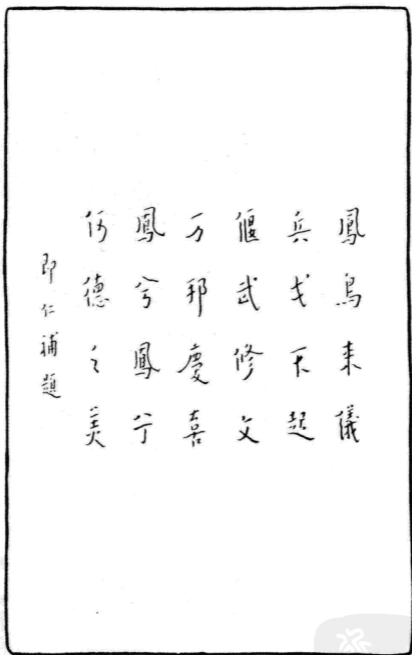 鳳鳥来儀
兵戈不起
偃武修文
万邦慶喜
鳳兮鳳兮
何德之美
即仁補題